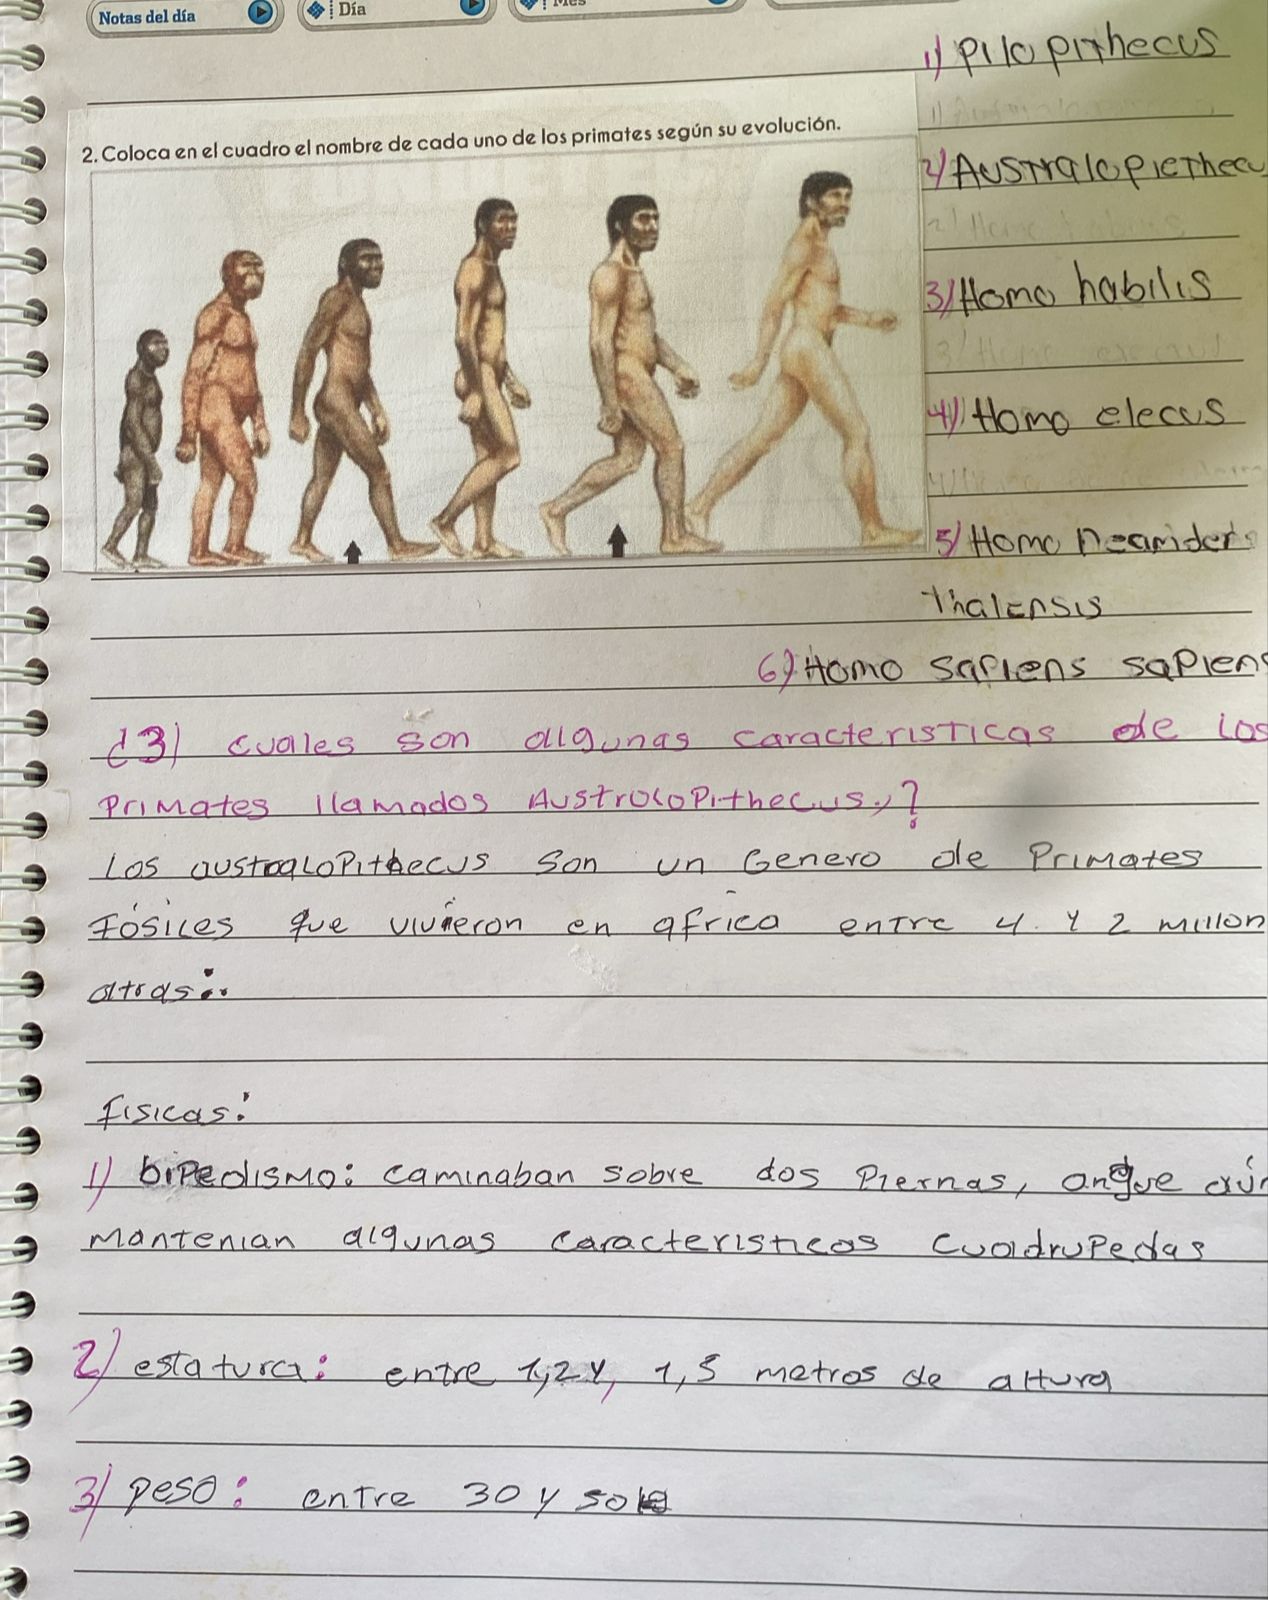 Notas del día
Día
Mes
1) Pilopithecus
2. Coloca en el cuadro el nombre de cada uno de los primates según su evolución.
2) Australopiethecu
3) Homo habilis
4) Homo elecus
5) Homo neanider
thalensis
6) Homo sapiens sapiens
¿3) cuales son algunas caracteristicas de los
primates llamados Austrolopithecus,?
Los australopithecus son un Genero de Primates
fósiles que vivieron en africa entre 4. y 2 millon
atras:.
fisicas:
1) bipedismo: caminaban sobre dos piernas, anque aún
mantenian algunas caracteristicas cuadrupedas
2) estatura: entre 1,2 y, 1,5 metros de altura
3) peso: entre 30 y 50